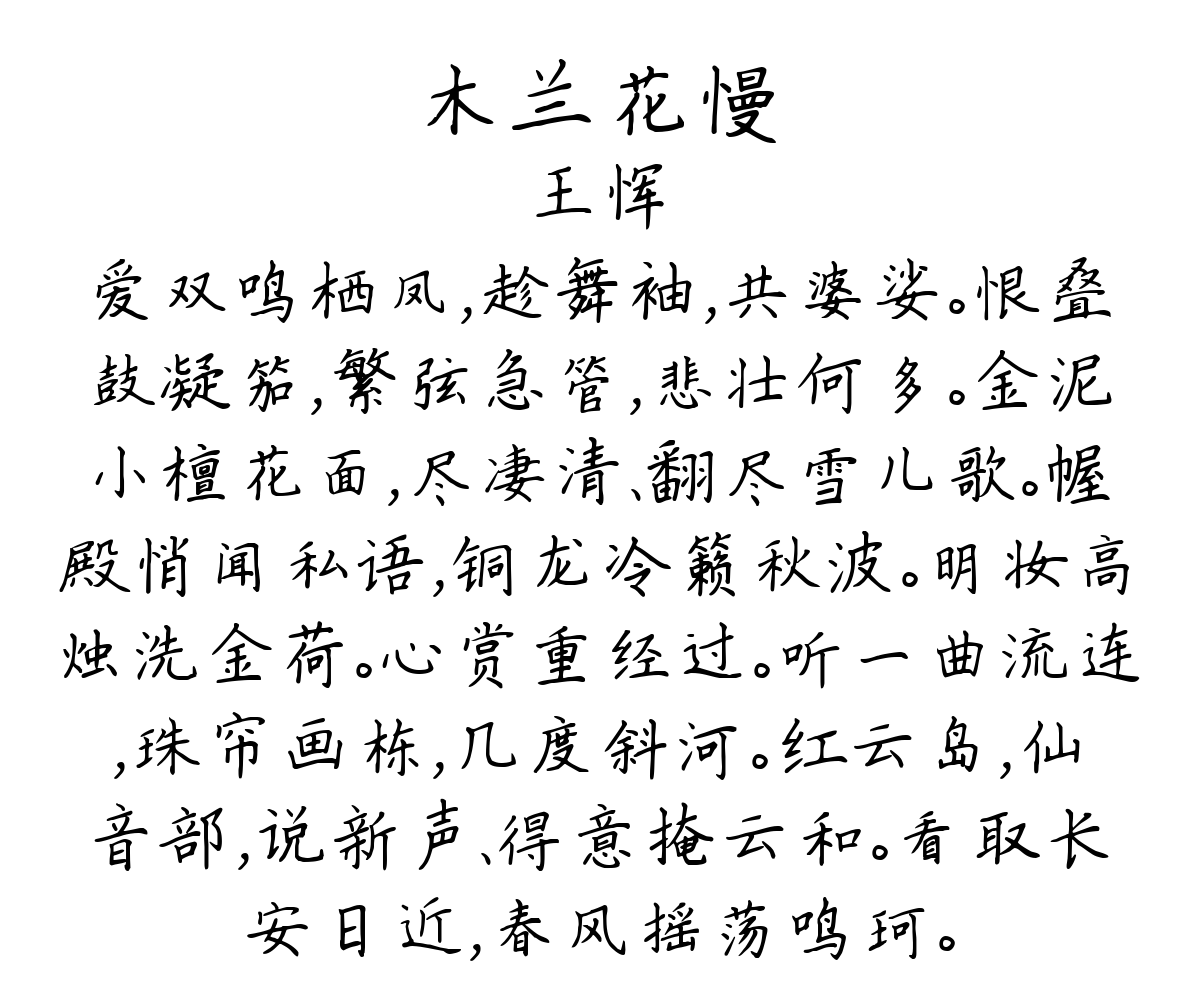 木兰花慢
王恽
爱双鸣栖凤,趁舞袖,共婆娑。恨叠
鼓凝笳,繁弦急管,悲壮何多。金泥
小檀花面,尽凄清、翻尽雪儿歌。幄
殿悄闻私语,铜龙冷籁秋波。明妆高
烛洗金荷。心赏重经过。听一曲流连
,珠帘画栋,几度斜河。红云岛,仙
音部,说新声、得意掩云和。看取长
安日近,春风摇荡鸣珂。